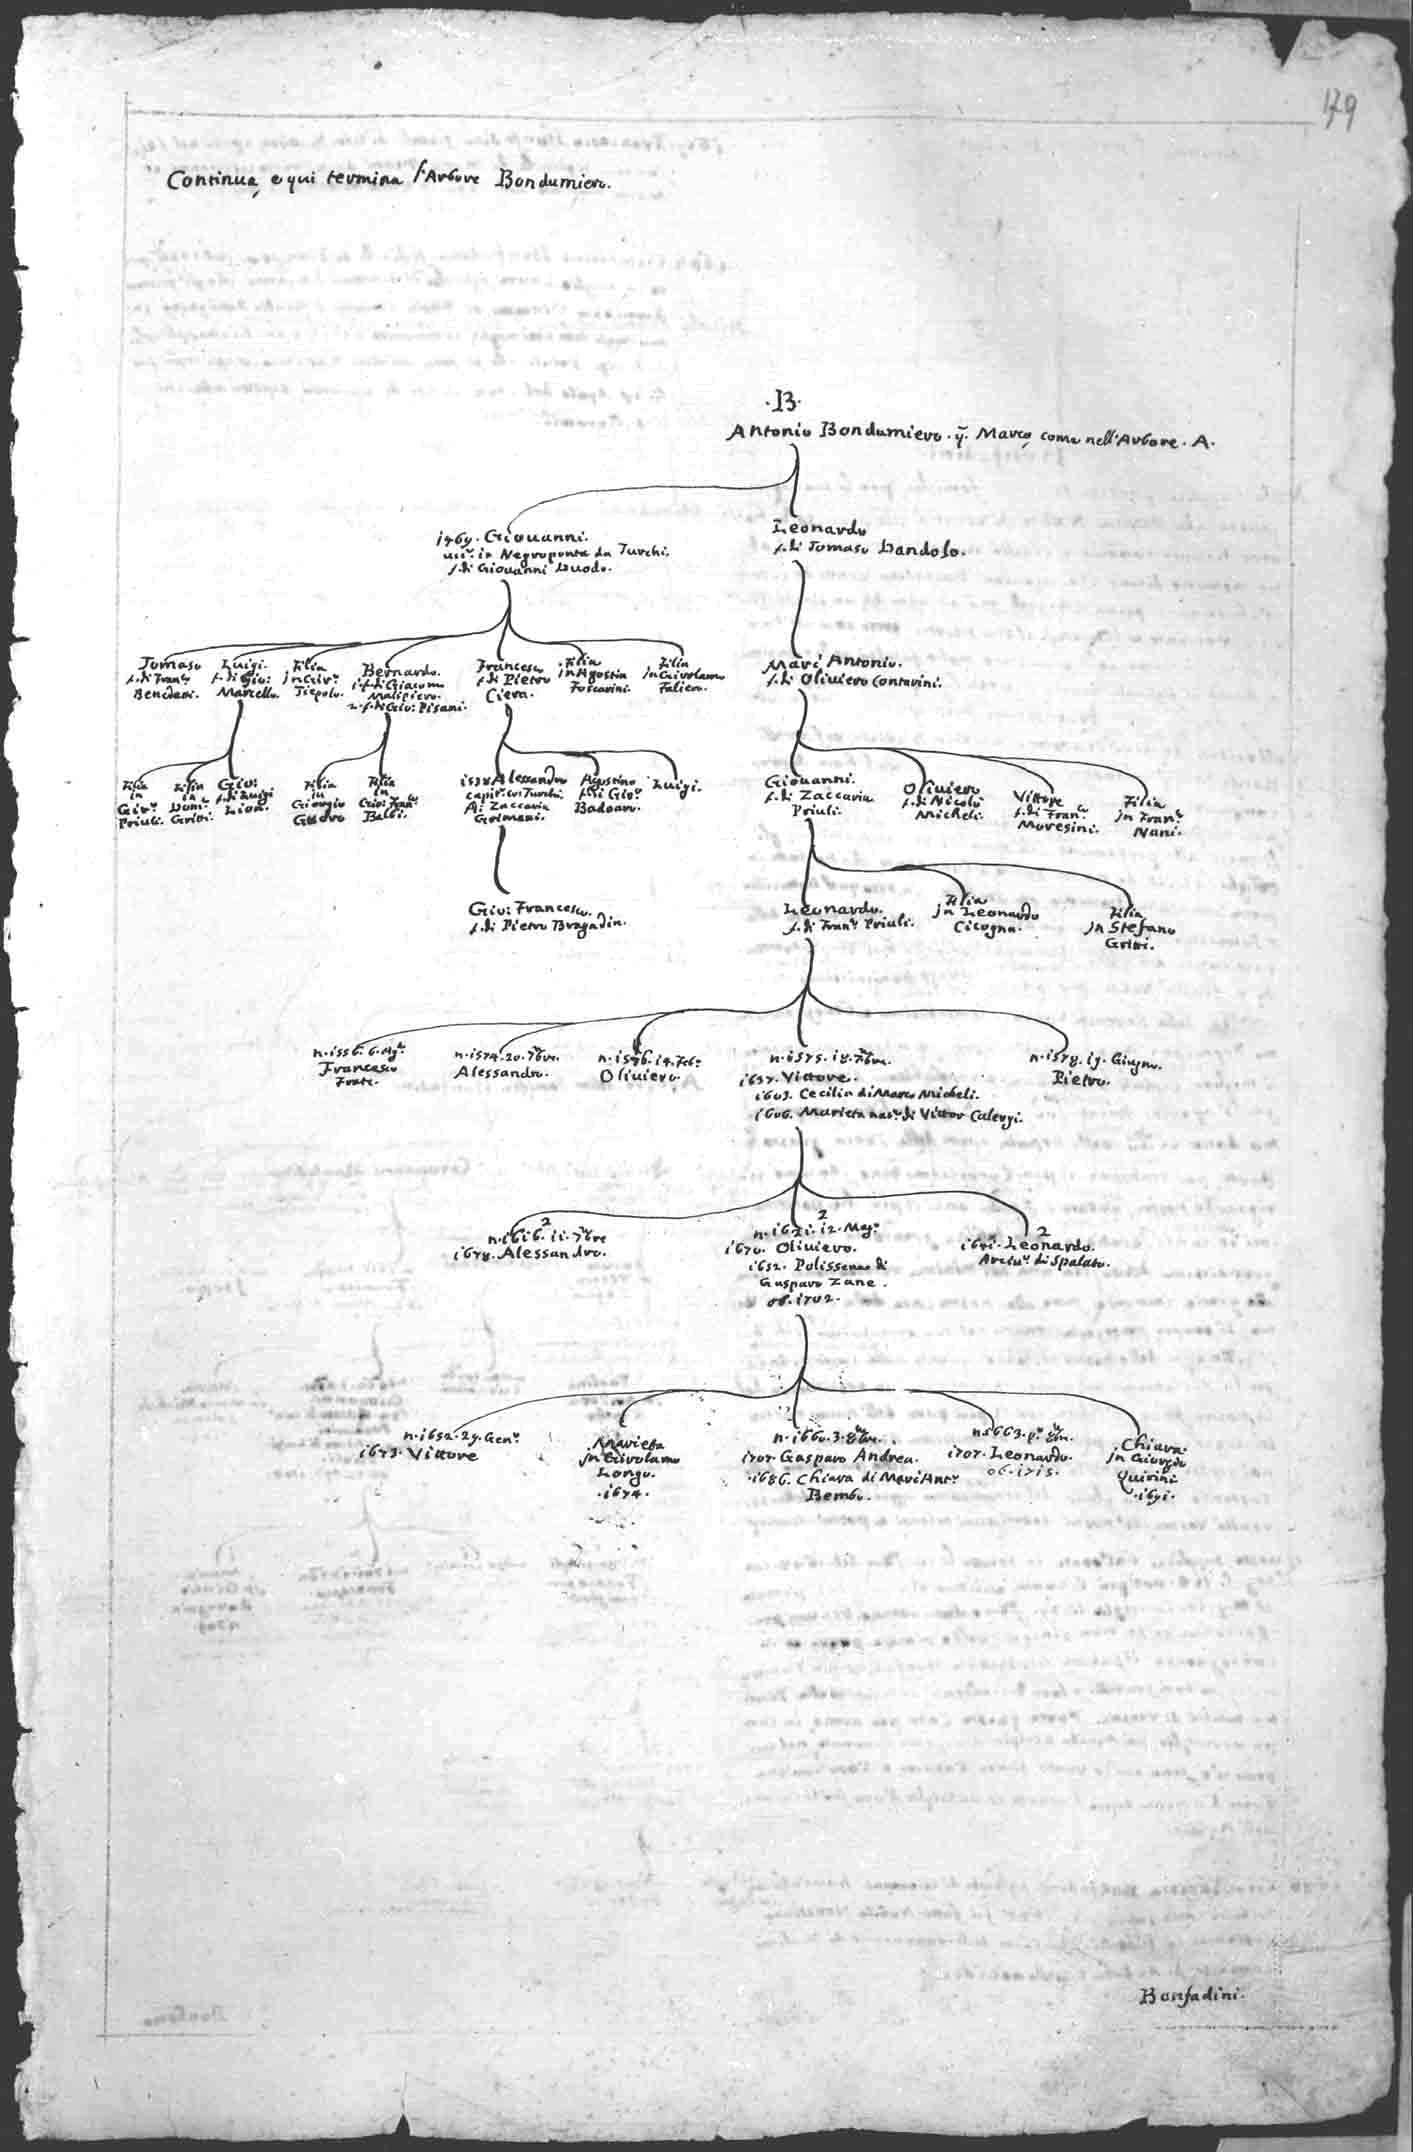 179
Continua, e qui termina l'Arbore Bondumiero.
.B.
Antonio Bondumiero. q̃. Marco, come nell'Arbore. A.
1469. Giouanni.
ucc.º in Negroponte da Turchi.
f. di Giouanni Duodo.
Leonardo
f. di Tomaso Dandolo.
Tomaso
f. di Fran.co
Bendani.
Luigi.
f. di Gio:
Marcello.
Filia
jn Gir.º
Tiepolo.
Bernardo.
1. f. di Giacomo
Malipiero.
2. f. di Gio: Pisani.
Francesco
f. di Pietro
Ciera.
Filia
jn Agostin
Foscarini.
Filia
jn Girolamo
Faliero.
Marc'Antonio.
f. di Oliuiero Contarini.
Filia
in
Gir.º
Priuli.
Filia
in
Dom.co
Gritti.
Gio:
f. di Luigi
Lion.
Filia
in
Giorgio
Guoro
Filia
in
Gio: Fran.co
Balbi.
1538 Alessandro
capit.º coi Turchi.
f. di Zaccaria
Grimani.
Agostino
f. di Gio:
Badoaro.
Luigi.
Giouanni.
f. di Zaccaria
Priuli.
Oliuiero
f. di Nicolò
Micheli.
Vittore
f. di Fran.co
Moresini.
Filia
jn Fran.co
Nani.
Gio: Francesco.
f. di Pietro Bragadin.
Leonardo.
f. di Fran.co Priuli.
Filia
jn Leonardo
Cicogna.
Filia
jn Stefano
Gritti.
n. 1556. 6. Mg.º
Francesco
Frate.
n. 1574. 20. 7bre.
Alessandro.
n. 1576. 14. Feb.º
Oliuiero.
n. 1575. 18. 7bre.
1637. Vittore.
1603. Cecilia di Marco Micheli.
1606. Marieta nat.le di Vittor Calergi.
n. 1578. 19. Giugno.
Pietro.
2
n. 1616. 11. 7bre
1678. Alessandro.
2
n. 1621. 12. Mag.º
1670. Oliuiero.
1652. Polissena di
Gasparo Zane.
ob. 1702.
2
1641. Leonardo.
Arciu.º di Spalato.
n. 1652. 29. Gen.º
1673. Vittore
Marieta
jn Girolamo
Longo.
.1674.
n. 1660. 3. 8bre.
1707. Gasparo Andrea.
.1686. Chiara di Marc'Ant.º
Bembo.
n. 1663. p.º 8bre.
1707. Leonardo.
ob. 1715.
Chiara
jn Giorgio
Quirini
.1691.
Bonfadini.